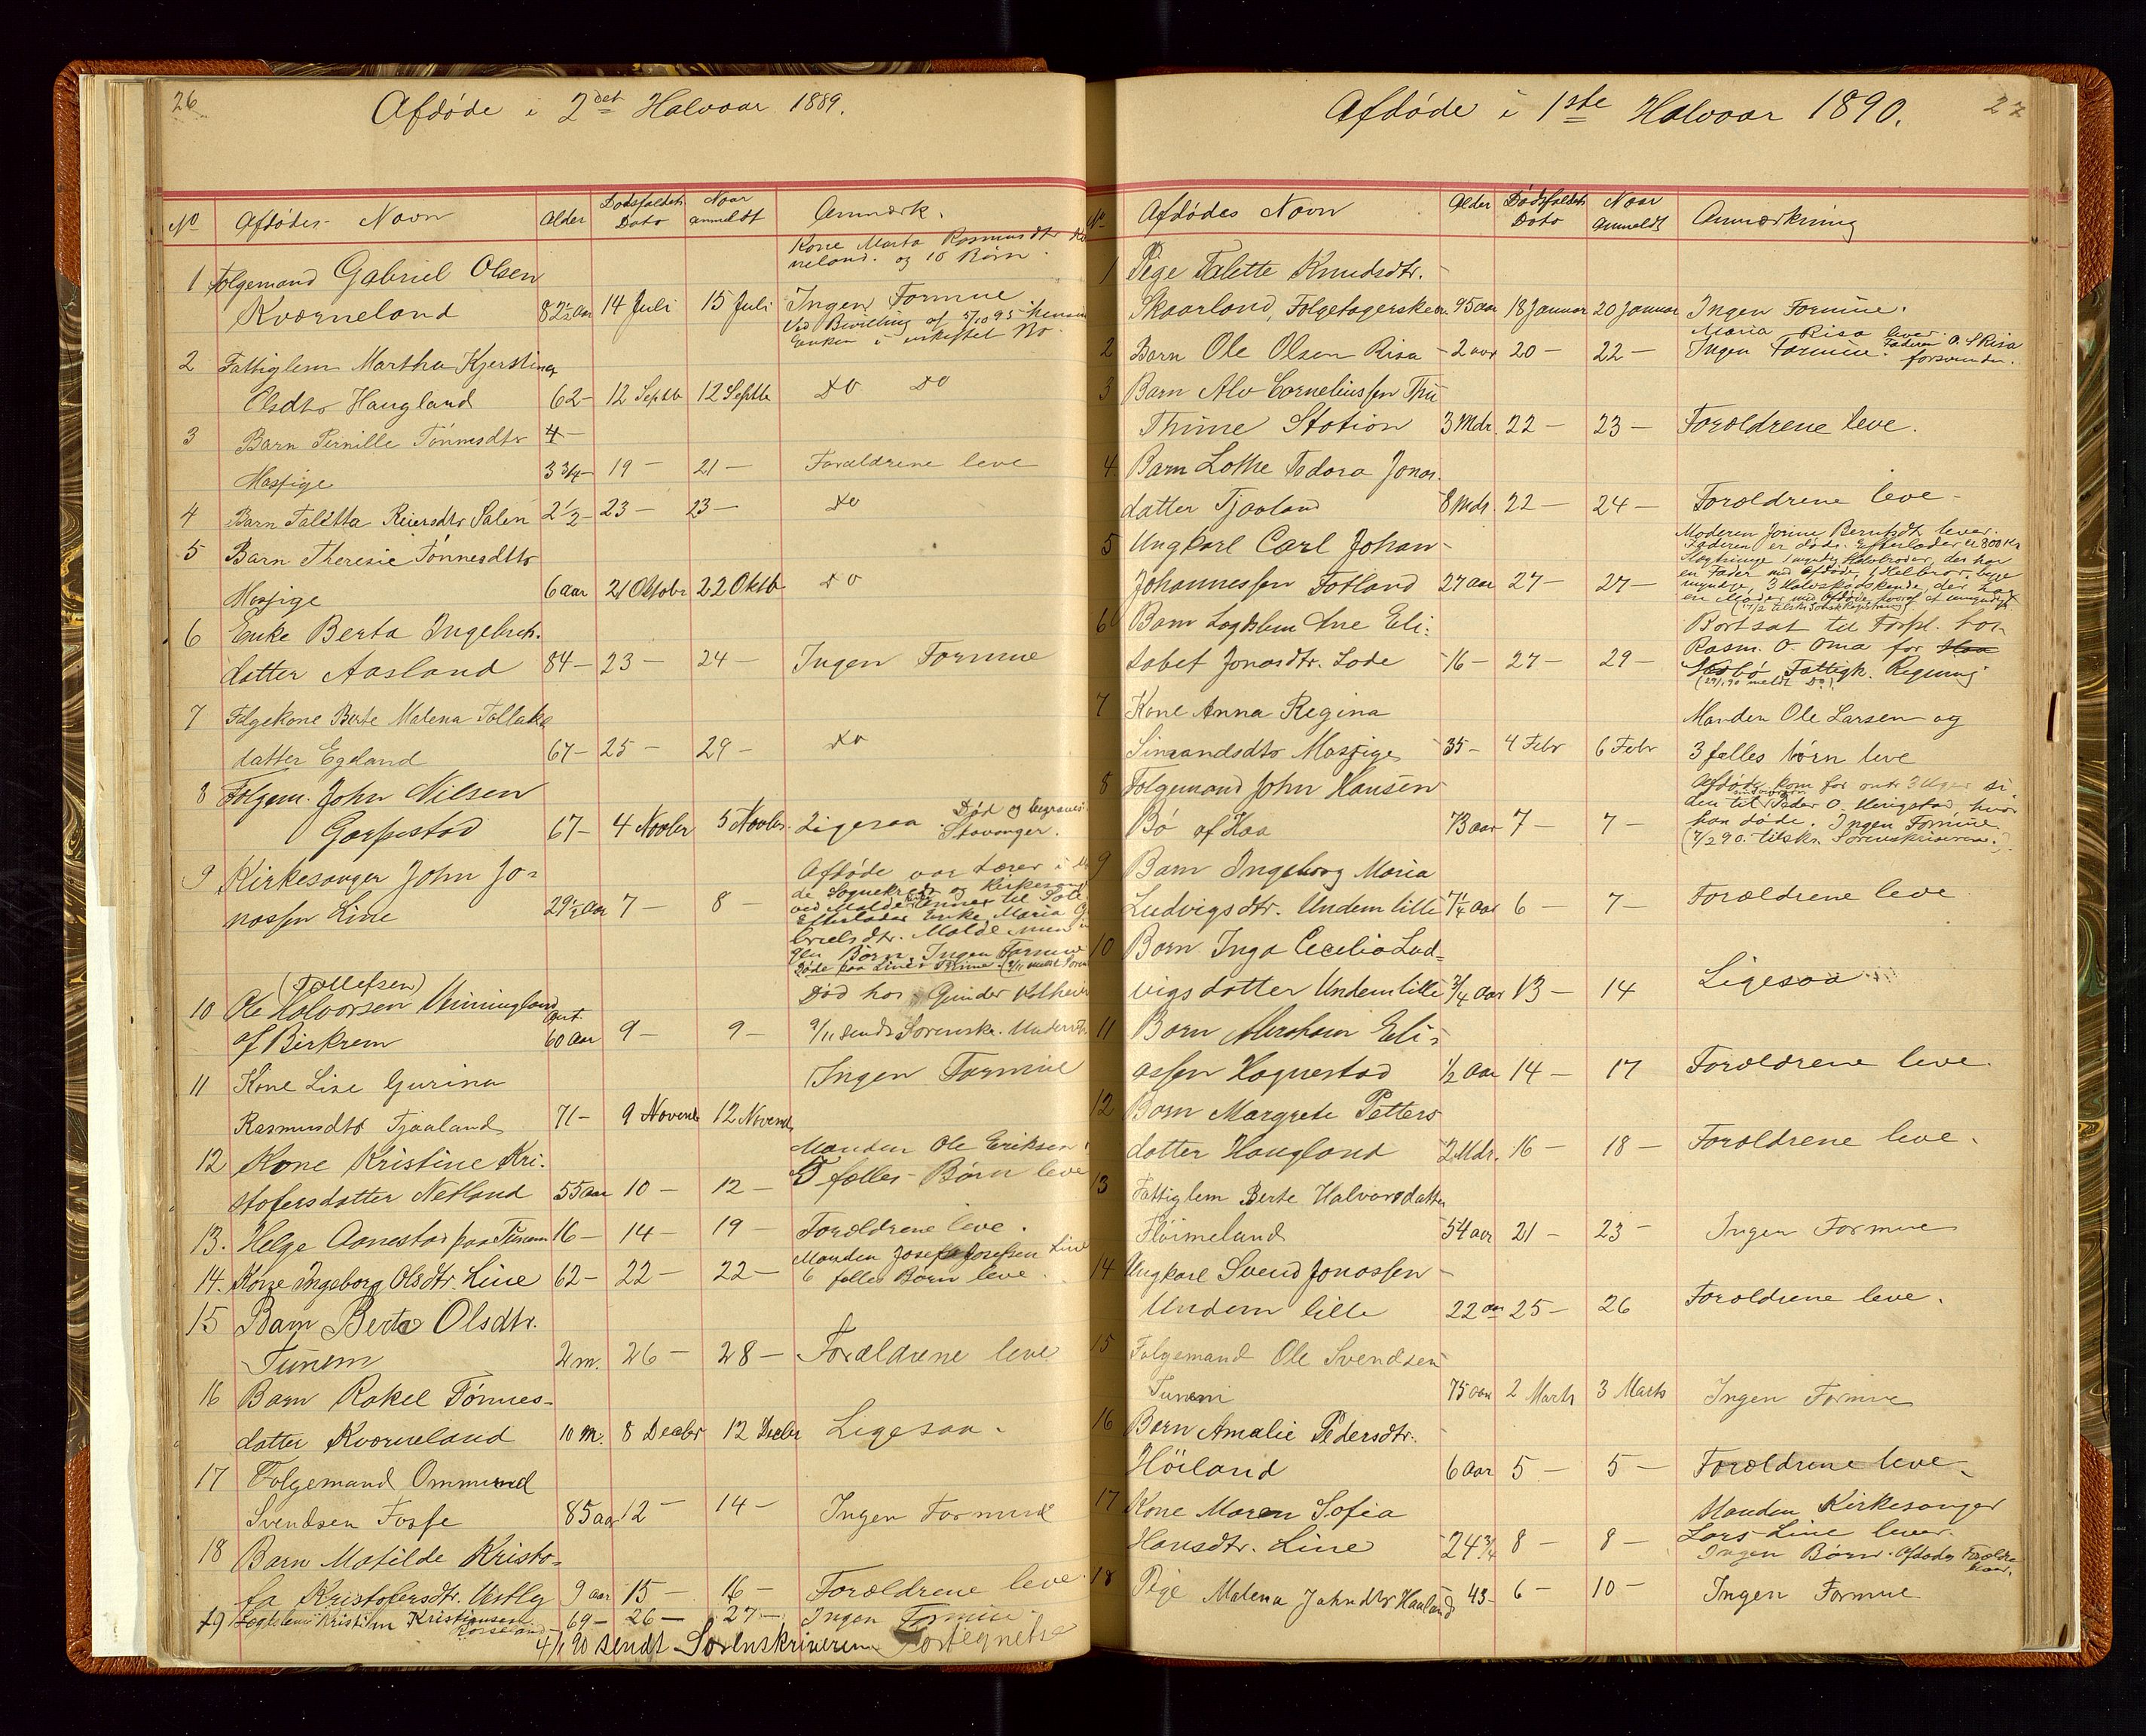 26
Afdøde i 2det Halvaar 1889.
No Afdødes Navn Alder Dødsfaldets Dato Naar anmeldt Anmærk.
Kone Marta Rasmusdtr Kv
neland. og 10 Børn.
1 Folgemand Gabriel Olsen
Kværneland 82½ Aar 14 Juli 15 Juli Ingen Formue
Ved Bevilling af 5/10 95 hensid
Enken i uskiftet Bo
2 Fattiglem Martha Kjerstina
Olsdtr Haugland 62 - 12 Septb 12 Septb Do Do
3 Barn Pernille Tønnesdtr 4 -
Mossige 3 3/4 - 19 - 21 - Forældrene leve
4 Barn Talètta Reiersdtr Salen 2½ - 23 - 23 - Do
5 Barn Theresie Tønnesdtr
Mossige 6 aar 21 Oktobr 22 Oktb Do
6 Enke Berta Ingebret.
datter Aasland 84 - 23 - 24 - Ingen Formue
7 Folgekone Berte Malena Tollaks
datter Egeland 67 - 25 - 29 - Do
8 Folgem. John Nilsen
Garpestad 67 - 4 Novbr 5 Novbr. Ligesaa. Død og begraves i
Stavanger.
9 Kirkesanger John Jo=
nassen Line 29½ Aar 7 - 8 - Afdøde var Lærer i
de Sognekreds og Kirkesang
ved Malde Annex til
Efterlader Enke Maria G
brielsdtr. Malde men
gen Børn. Ingen Formue
Døde paa Line i Thime.
(Tollefsen)
10 Ole Halvorsen Vinningland
af Birkrem ant 60 Aar 9 - 9 - Død hos Gunder
9/11 sendt Sorenskr. Underret
11 Kone Lise Gurina
Rasmusdtr Tjaaland 71 - 9 Novemb 12 Novemb Ingen Formue
12 Kone Kristine Kri.
stofersdatter Netland 55 aar 10 - 12 - Manden Ole Eriksen
5 fælles Børn leve
13. Helge Aanestad paa Tunem 16 - 14 - 19 - Forældrene leve.
14. Kone Ingeborg Olsdtr. Line 62 - 22 - 22 - Manden Josef Josefsen Line
6 fælles Børn leve.
15 Barn Berta Olsdtr.
Tunem 2 m. 26 - 28 - Forældrene leve
16 Barn Rakel Tønnes-
datter Kværneland 10 M. 8 Decbr 12 Decbr Ligesaa.
17 Folgemand Ommund
Svendsen Fosse 85 aar 12 - 14 - Ingen Formue
18 Barn Matilde Kristo=
fa Kristofersdtr. Vestly 9 aar 15 - 16 - Forældrene leve.
19 Lægdslem Kristian Kristiansen
69 - 26 - 27 - Ingen Formue.
4/1 90 sendt Sorenskriveren Fortegnelse
27
Afdøde i 1ste Halvaar 1890.
No Afdødes Navn Alder Dødsfaldets Dato Naar anmeldt Anmærkning
1 Pige Talette Knudsdtr.
Skaarland, Folgetagerske 95 aar 18 Januar 20 Januar Ingen Formue.
2 Barn Ole Olsen Risa - 2 aar 20 - 22 - Maria Risa lever. Faderen O. S Risa
Ingen Formue. forsvunden.
3 Barn Alv Corneliussen Thu
Thime Station 3 Mdr. 22 - 23 - Forældrene leve.
4. Barn Lothe Todora Jonas.
datter Tjaaland 8 Mdr. 22 - 24 - Forældrene leve -
5 Ungkarl Carl Johan
Johannessen Fotland 27 aar 27 - 27 - Moderen Jonine Berntsdt lever.
Faderen er død. Efterlader ca 800 Kr
Slægtninge 1 myndig Halvbroder, der har
en Fader med Afdøde, 1 Helbror, begge
myndige, 3 Halvsødskende, der har
en Moder med Afdøde, hvoraf et umyndigt
6 Barn Lægdslem Ane Eli:
sabet Jonasdtr. Lode 16 - 27 - 29 - Bortsat til Forpl. hos
Rasm. O. Oma for
Fattigk. Regning
(29/1 90 meldt Do).
7 Kone Anna Regina
Simzandsdtr Mossige 35 - 4 Febr 6 Febr Manden Ole Larsen og
3 fælles børn leve
8 Folgemand John Hansen
Bø af Haa 73 aar 7 - 7 - Afdøde kom for omtr 3 Uger si
den til Peder O. Herigstad hvor
han døde. Ingen Formue.
(7/2 90. tilskr. Sorenskriveren.)
9 Barn Ingeborg Maria
Ludvigsdtr. Undem lille 7¼ aar 6 - 7 - Forældrene leve
10 Barn Inga Cecilia Lud=
vigsdatter Undem lille 3/4 aar 13 - 14 Ligesaa
11 Barn Abraham Eli=
assen Hognestad ½ Aar 14 - 17 Forældrene leve.
12 Barn Margrete Petters
datter Haugland 2 Mdr. 16 - 18 - Forældrene leve.
13 Fattiglem Berte Halvorsdatter
Fløimeland 54 aar 21 - 23 - Ingen Formue
14 Ungkarl Svend Jonassen
Undem lille 22 aar 25 - 26 Forældrene leve.
15 Folgemand Ole Svendsen
Tunem 75 aar 2 Marts 3 Marts Ingen Formue
16 Barn Amalie Pedersdtr.
Høiland 6 aar 5 - 5 - Forældrene leve
17 Kone Maren Sofia
Hansdtr. Line 24 3/4 8 - 8 - Manden Kirkesanger
Lars Line lever.
Ingen Børn. Afdødes Forældre
18 Pige Malena Jahndtr Haaland 43 - 6 - 10 - Ingen Formue